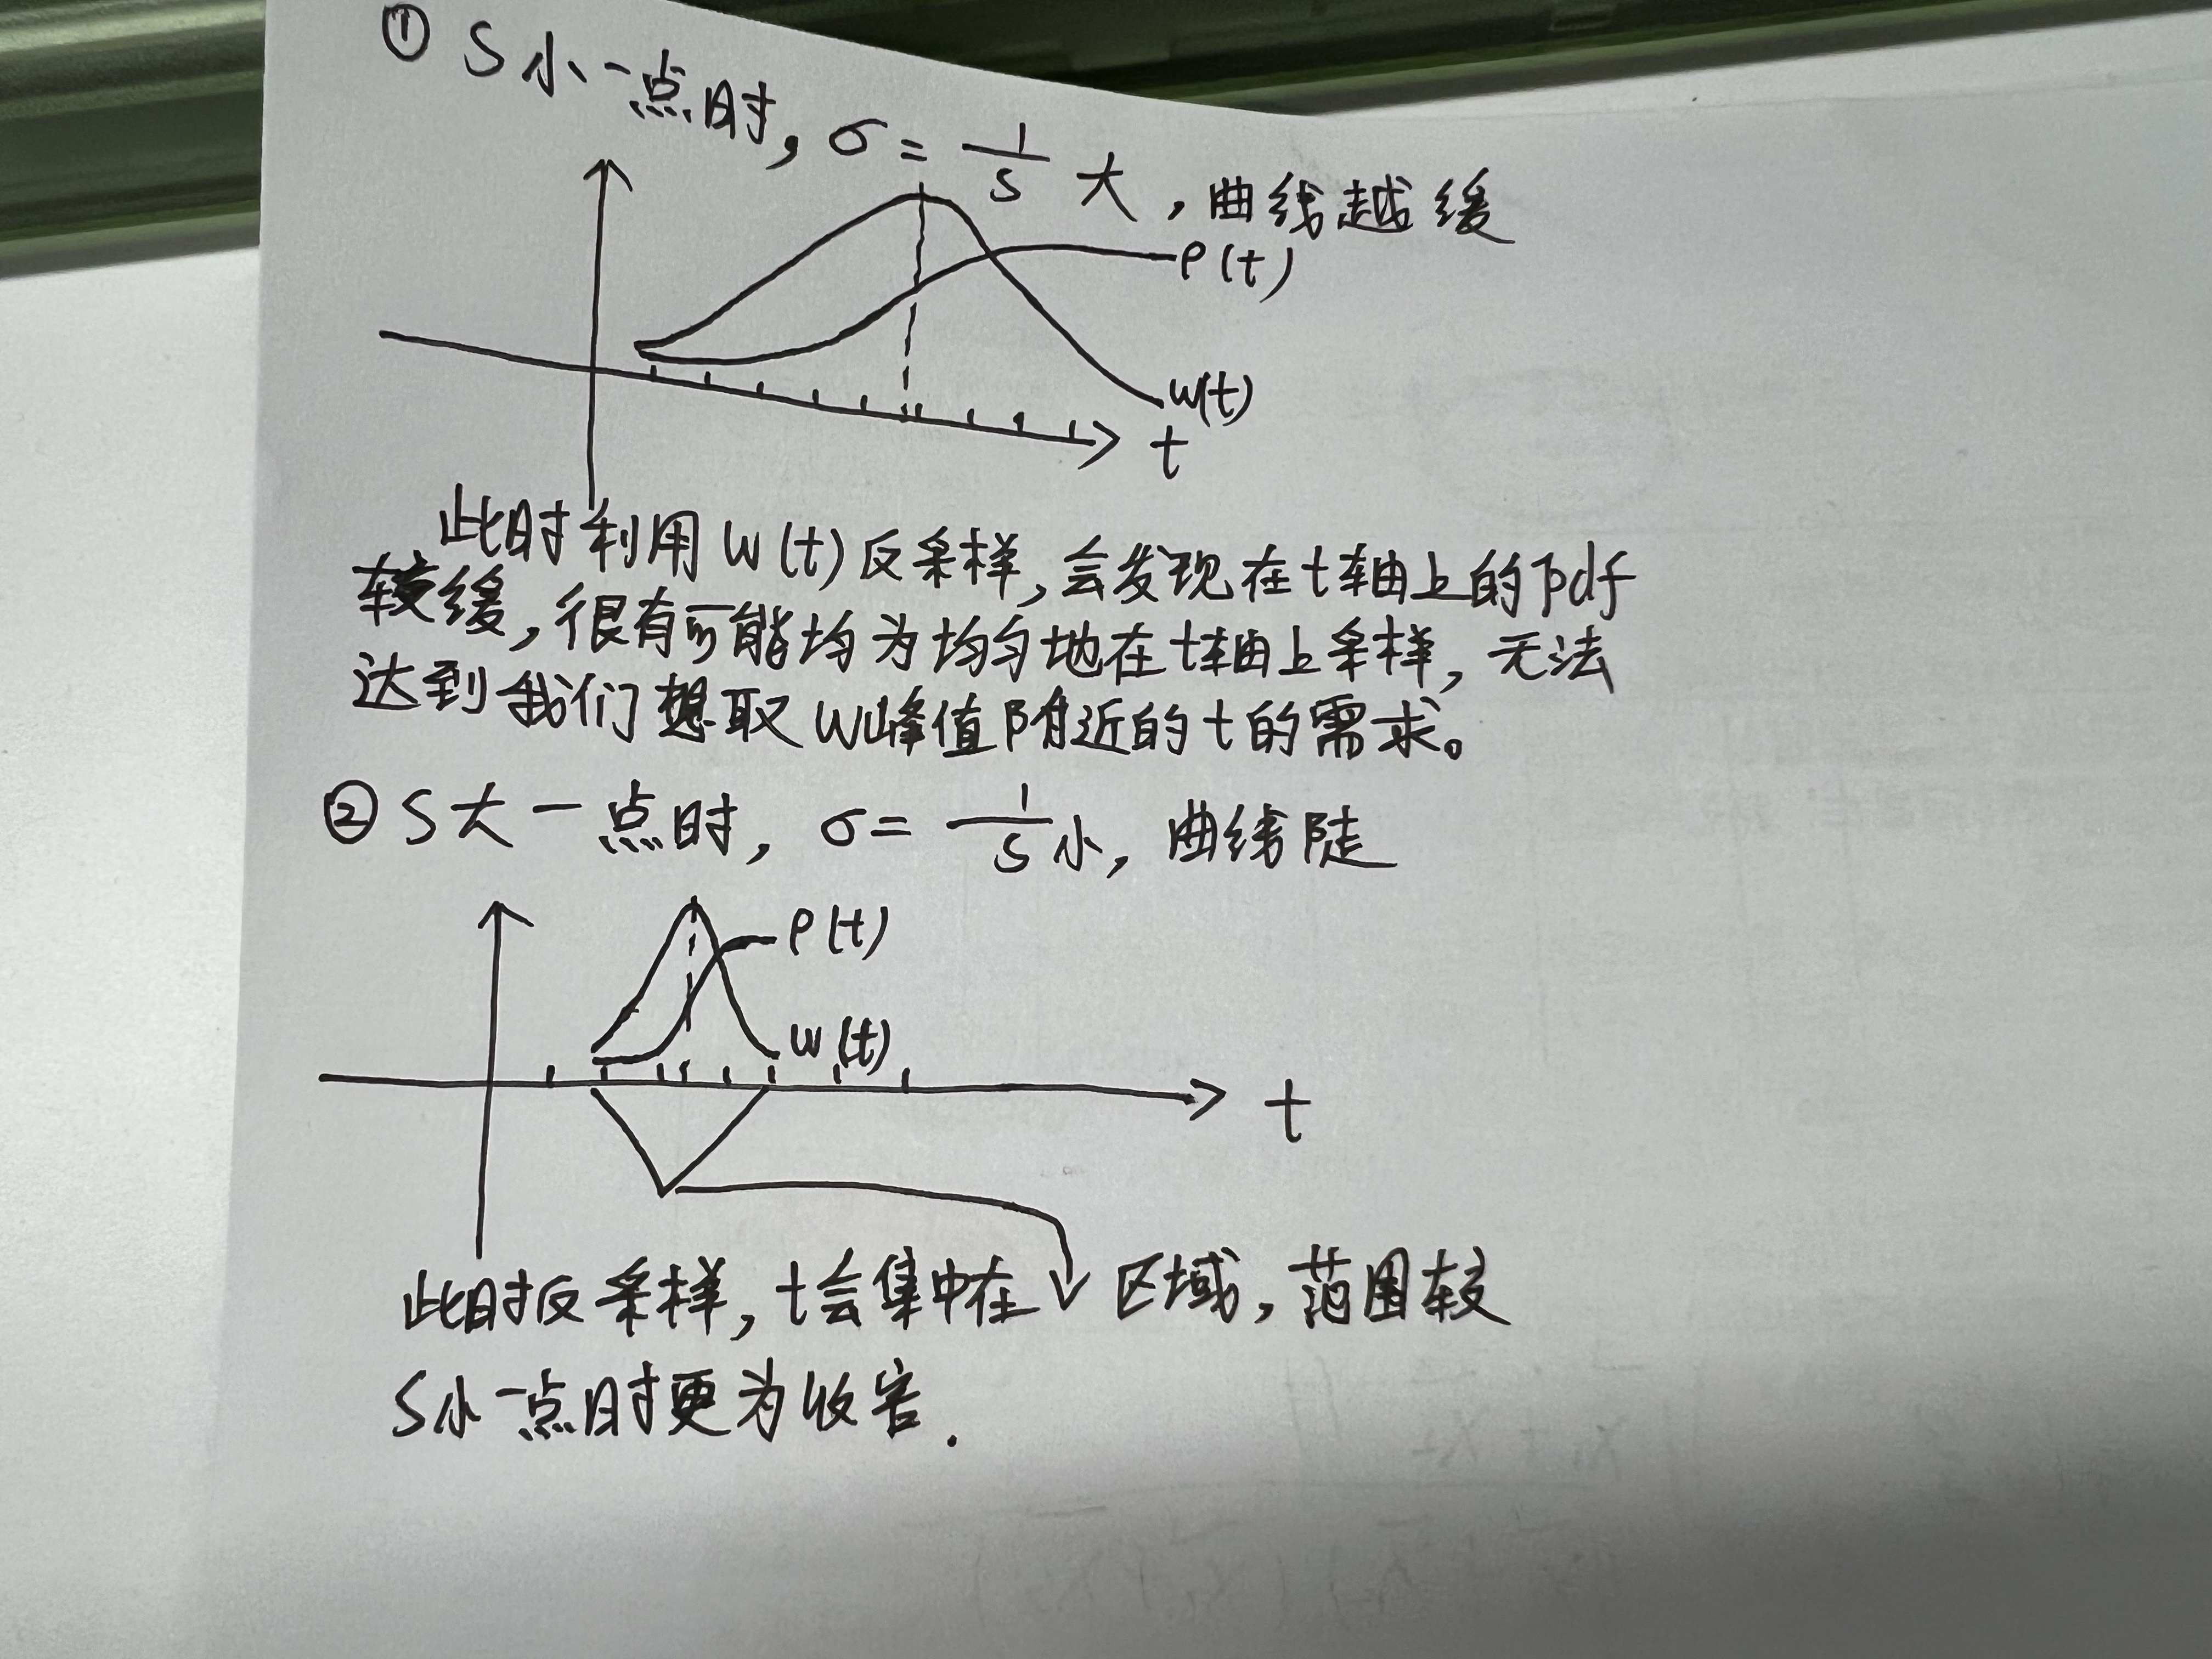 ① S小一点时, σ = 1/S 大, 曲线越缓
ρ(t)
w(t)
t
此时利用 w(t) 反采样, 会发现在t轴上的pdf
较缓, 很有可能均为均匀地在t轴上采样, 无法
达到我们想取 w峰值附近的t的需求。
② S大一点时, σ = 1/S 小, 曲线陡
ρ(t)
w(t)
t
此时反采样, t会集中在 区域, 范围较
S小一点时更为收害.